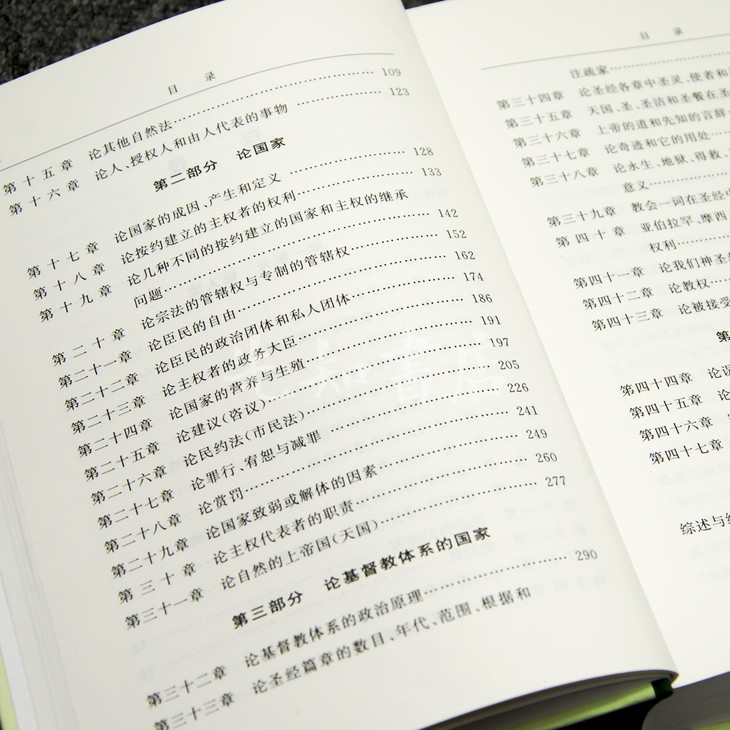 目 录
第十五章 论其他自然法……109
第十六章 论人、授权人和由人代表的事物……123
第二部分 论国家
第十七章 论国家的成因、产生和定义……128
第十八章 论按约建立的主权者的权利……133
第十九章 论几种不同的按约建立的国家和主权的继承
问题……142
第二十章 论宗法的管辖权与专制的管辖权……152
第二十一章 论臣民的自由……162
第二十二章 论臣民的政治团体和私人团体……174
第二十三章 论主权者的政务大臣……186
第二十四章 论国家的营养与生殖……191
第二十五章 论建议(咨议)……197
第二十六章 论民约法(市民法)……205
第二十七章 论罪行、宥恕与减罪……226
第二十八章 论赏罚……241
第二十九章 论国家致弱或解体的因素……249
第三十章 论主权代表者的职责……260
第三十一章 论自然的上帝国(天国)……277
第三部分 论基督教体系的国家
第三十二章 论基督教体系的政治原理……290
第三十三章 论圣经篇章的数目、年代、范围、根据和
目 录
注疏家……
第三十四章 论圣经各章中圣灵、使者和
第三十五章 天国、圣、圣洁和圣餐在圣
第三十六章 上帝的道和先知的言辞
第三十七章 论奇迹和它的用处……
第三十八章 论永生、地狱、得救、
意义……
第三十九章 教会一词在圣经中
第四十章 亚伯拉罕、摩西
权利……
第四十一章 论我们神圣
第四十二章 论教权……
第四十三章 论被接受
第
第四十四章 论
第四十五章 论
第四十六章
第四十七章
综述与
知書店